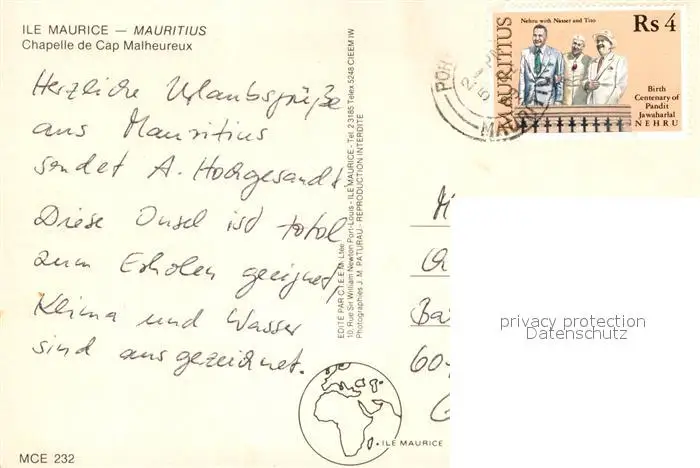 ILE MAURICE — MAURITIUS
Chapelle de Cap Malheureux
Herzliche Urlaubsgrüße
aus Mauritius
sendet A. Hochgesandt
Diese Insel ist total
zum Erholen geeignet,
Klima und Wasser
sind ausgezeichnet.
MCE 232
EDITE PAR C.T.E.E.M. Ltée
10, Rue Sir William Newton Port-Louis - ILE MAURICE - Tel. 2 3185 Telex 5248 CIEEM IW
Photographies J. M. PATURAU - REPRODUCTION INTERDITE
ILE MAURICE
MAURITIUS
Nehru with Nasser and Tito
Rs 4
Birth
Centenary of
Pandit
Jawaharlal
NEHRU
POR
MAURITIU
60
privacy protection
Datenschutz